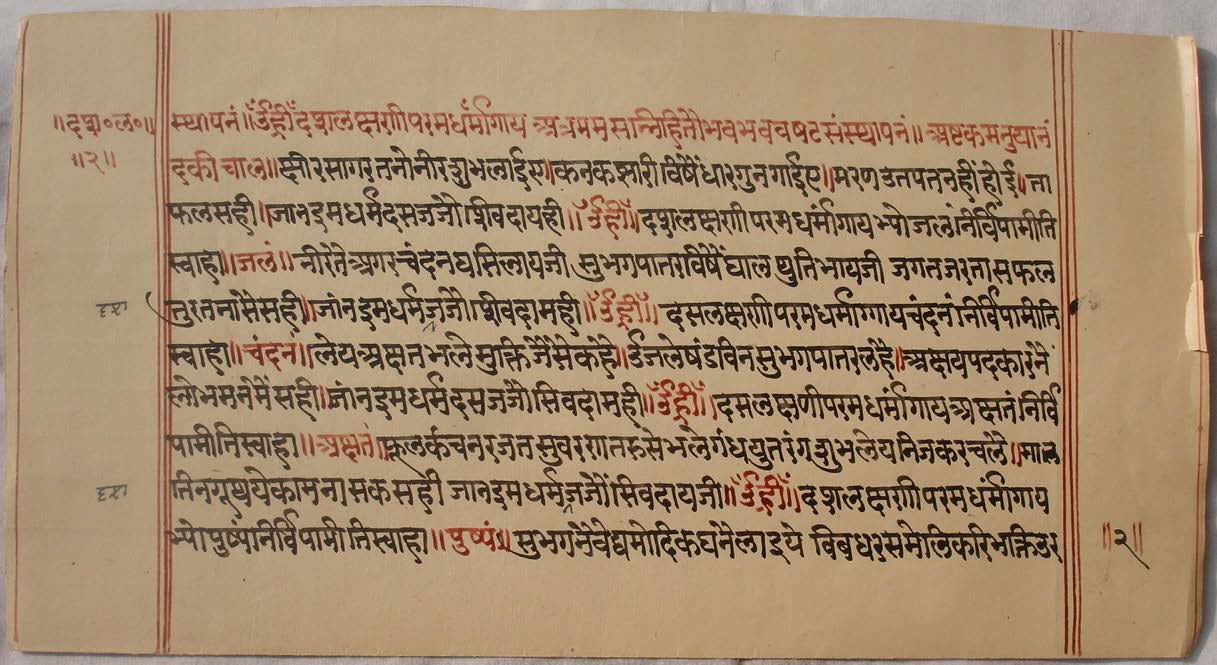 ॥दश॰ल॰॥
॥२॥
स्थापनं॥ॐह्रीँदशलक्षणीपरमधर्मांगाय अत्रममसन्निहितौभवभववषटसंस्थापनं॥ अष्टकमनुद्यानं
दकी चाल॥क्षीरसागरतनोनीरशुभलाईए।कनकझारीविषैंधारगुनगाईए॥मरणउतपतनहीं होई॥ता
फलसही॥जानइमधर्मदसजजौशिवदायही॥ॐह्रीँ॥दशलक्षणीपरमधर्मांगायभ्योजलंनिर्विपामीति
स्वाहा॥जलं॥नीरतेअगरचंदनघसिलायजी सुभगपातरविषैंघालथुतिभायजी जगतजरतासफल
तुरतनासैसही॥जांनइमधर्मजजौशिवदामही॥ॐह्रीँ॥दसलक्षणीपरमधर्मांगायचंदनंनिर्विपामीति
स्वाहा॥चंदनं॥लेयअक्षतभलेमुक्तिजैसेकहे॥उजलेषंडविनसुभगपातरलहै॥अक्षयपदकारनै
लोभमनमेंसही॥जांनइमधर्मदसजजौसिवदामही॥ॐह्रीँ॥दसलक्षणीपरमधर्मांगायअक्षतंनिर्वि
पामीतिस्वाहा॥अक्षतं॥फूलकंचनरजतसुवरणतरुसेभलेगंधयुतरंगशुभलेयनिजकरचले॥माल
तिनगुथयेकामनासकसही जानइमधर्मजजौंसिवदायजी॥ॐह्रीँ॥दशलक्षणीपरमधर्मांगाय
भ्योपुष्पंनिर्विपामीतिस्वाहा॥पुष्पं॥सुभगनैवेद्यमोदिकघनेलाइये विबधरसमेलिकरिभक्तिउर
॥२॥